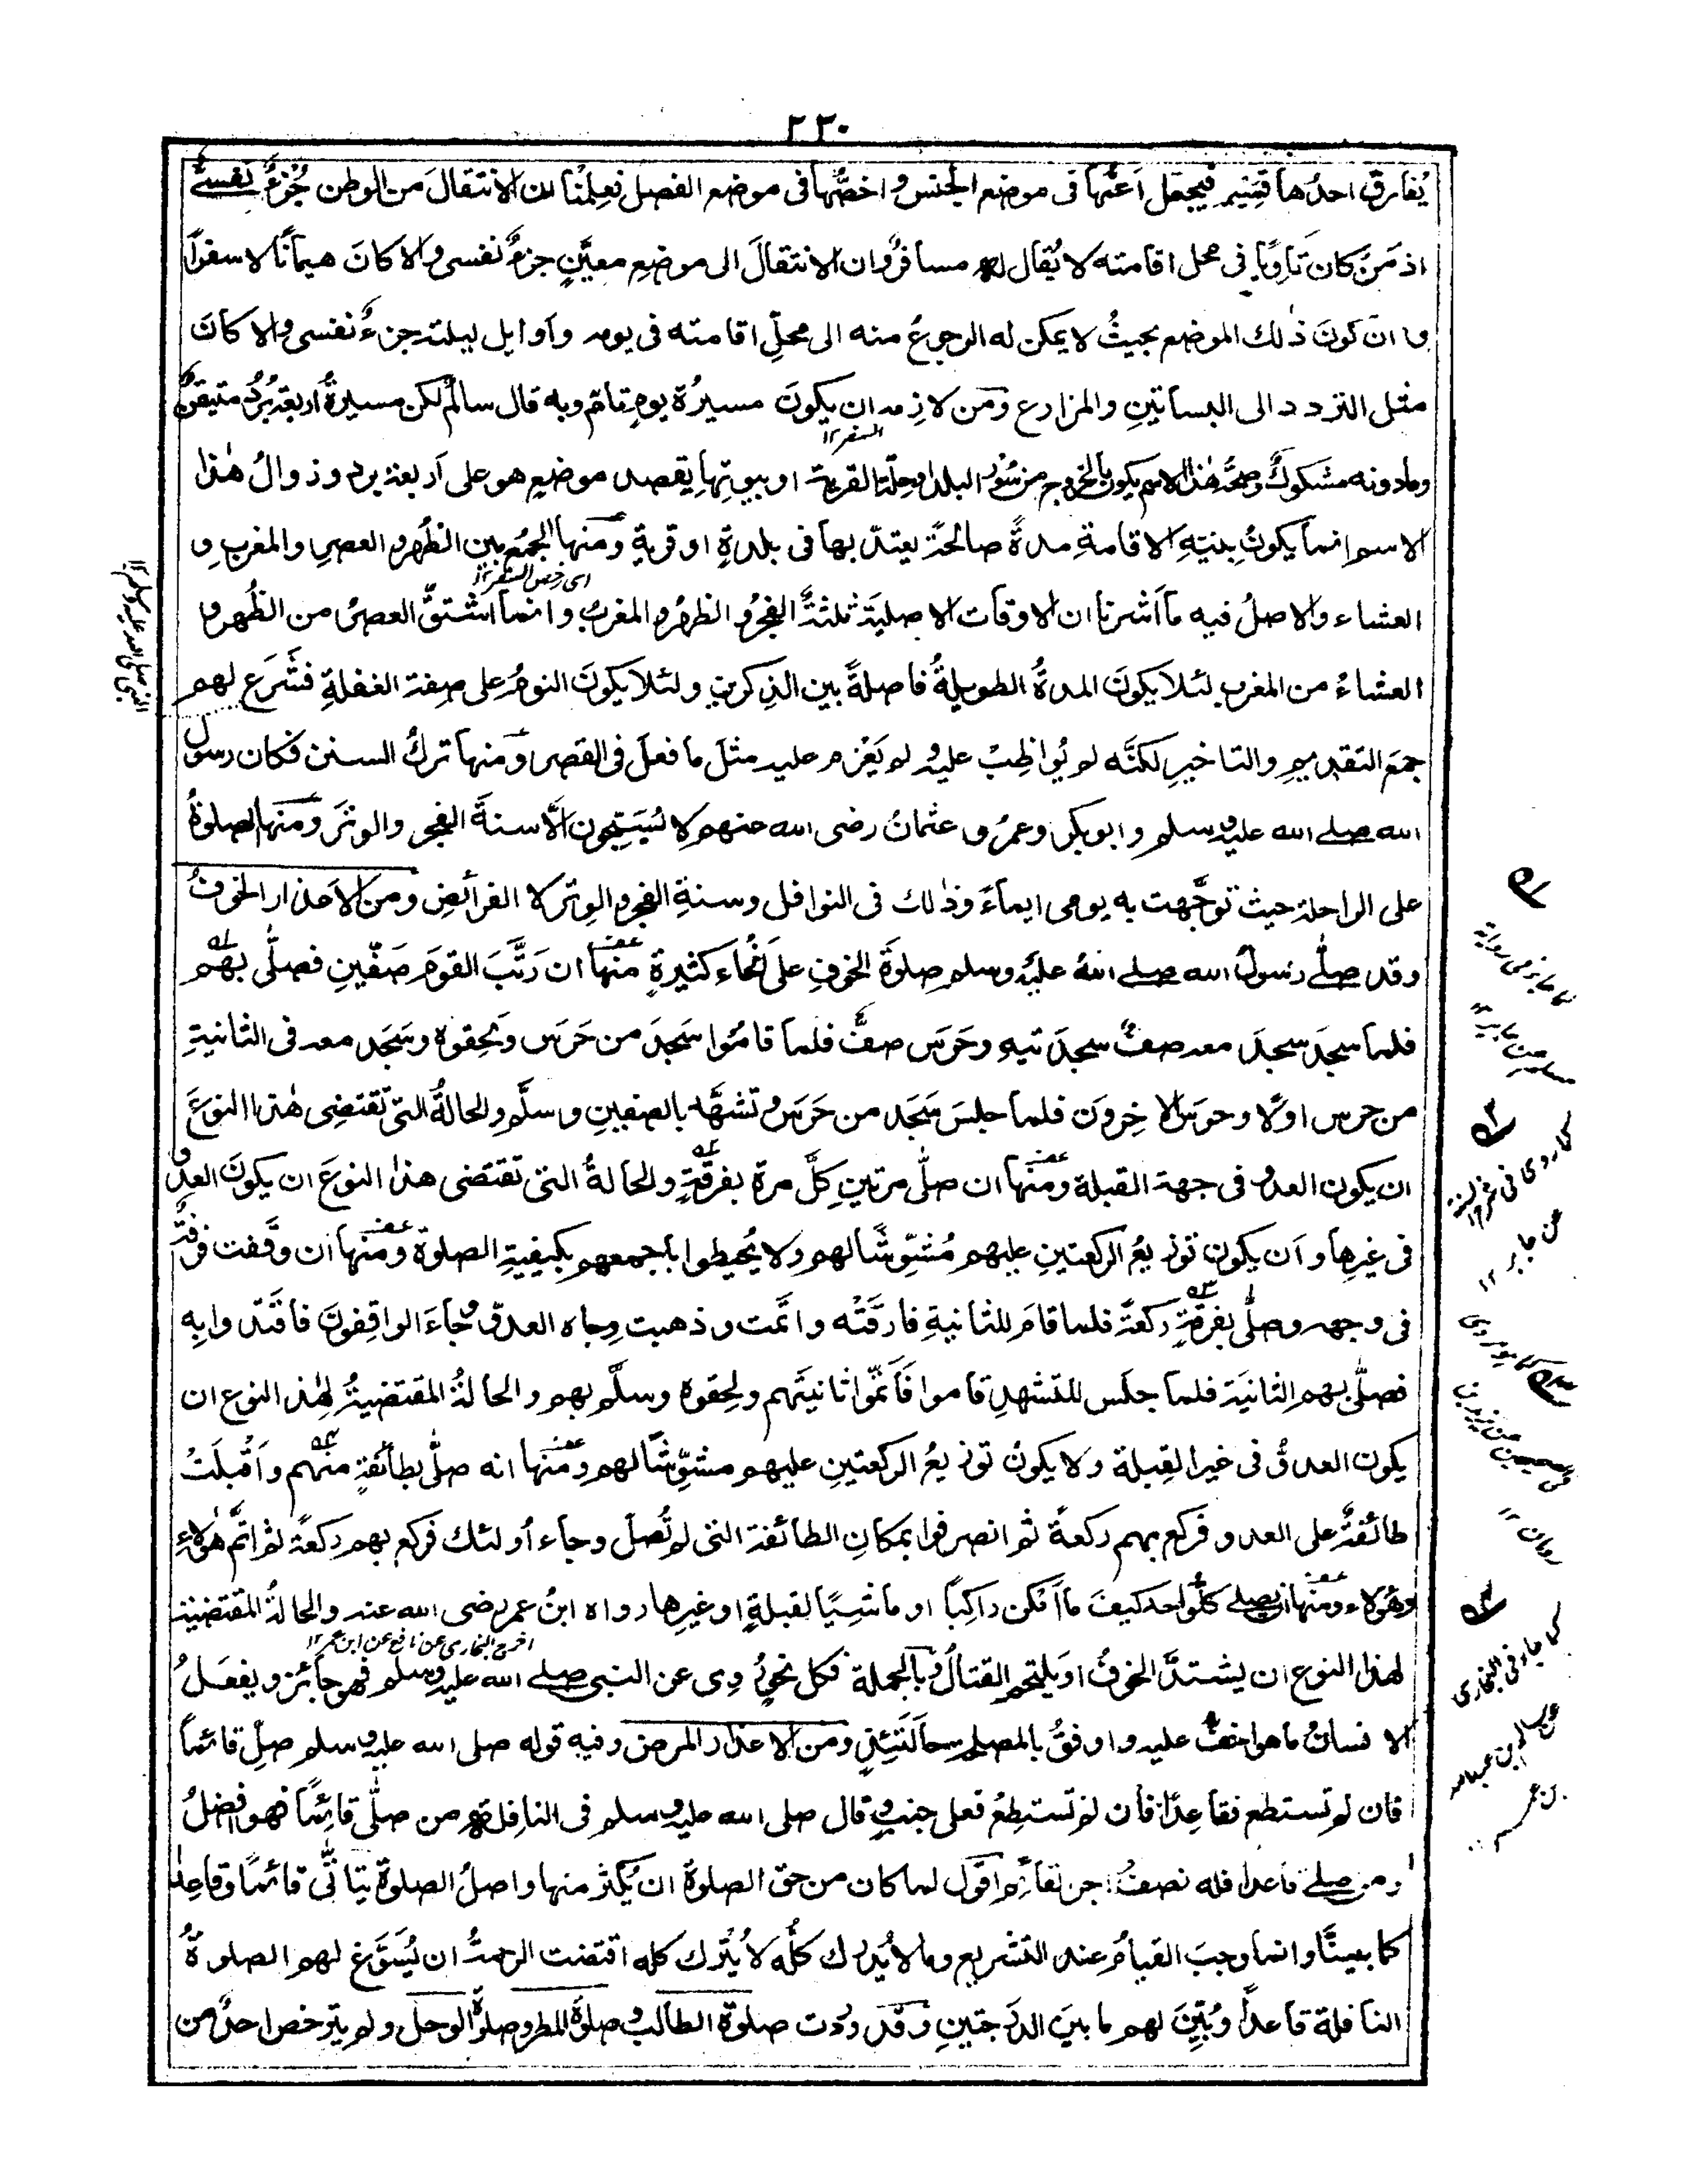 ٢٣٠
يُفارق احدُها قسيم فيجعل اَعمُّها فى موضع الجنس و اخصُّها فى موضع الفصل فعلِمْنا ان الانتقالَ من الوطن جُزءٌ نفسىٌّ
اذ مَنْ كان ثاوِيًا فى محل اقامته لا يُقال له مسافرٌ وان الانتقالَ الى موضعٍ معيَّنٍ جزءٌ نفسى والا كانَ هيمانًا لا سفرًا
و انّ كونَ ذٰلك الموضع بحيثُ لا يمكن له الرجوعُ منه الى محلِّ اقامته فى يومه واَوايل ليلته جزءٌ نفسى والا كانَ
مثل التردد الى البساتينِ والمزارع ومن لازمه ان يكونَ مسيرُة يومٍ تامٍّ وبه قال سالمٌ لكن مسيرةُ اربعةِ بُرُدٍ متيقنٌ
السفر ١٢
ومادونه مشكوكٌ وصحَّةُ هٰذا الاسم يكون بالخروج من سُورِ البلد او حلّة القرية او بيوتها بقصد موضع هو على اَربعة برد وزوالُ هٰذا
الاسم انما يكونُ بنيّة الاقامةِ مدةً صالحةً يعتدّ بها فى بلدةٍ او قريةٍ ومنها الجمعُ بين الظُهر والعصر والمغرب و
اى رخص السفر ١٢
العشاء والاصلُ فيه ما اَشرنا ان الاوقات الاصليةَ ثلثةٌ الفجرُ والظهرُ والمغربُ وانما اشتقَّ العصرُ من الظُهر و
العشاءُ من المغرب لئلا يكونَ المدةُ الطويلةُ فاصلةً بين الذِكرين ولئلا يكونَ النومُ على صِفة الغفلةِ فشَرَع لهم
جمعَ التقديمِ والتاخيرِ لكنَّه لم يُواظِبْ عليه ولم يَعْزِم عليه مثلَ ما فعلَ فى القصر ومنها تركُ السنن فكان رسول
الله صلے الله عليه وسلم وابوبكر وعمرُ و عثمانُ رضى الله عنهم لا يُسَبِّحون الَّا سنةَ الفجر والوِترَ ومنها الصلوةُ
على الراحلةِ حيث توجّهت به يومى ايماءً وذٰلك فى النوافل وسنةِ الفجر والوِتر لا الفرائضِ ومن الاعذار الخوفُ
وقد صلّٰى رسولُ الله صلے اللهُ عليه وسلم صلوةَ الخوفِ على اَنْحاء كثيرةٍ منها ان رَتَّبَ القومَ صَفّينِ فصلّٰى بهم
فلما سجدَ سجدَ معه صفٌّ سجدتَيه وحَرَسَ صفٌّ فلما قامُوا سَجَدَ من حَرَس ولَحِقوه وسَجَد معه فى الثانيةِ
من حرس اولًا وحرسَ الاخِرونَ فلما جلسَ سَجَد من حَرَسَ وتشهّد بالصفين وسلَّم والحالةُ التى تقتضِى هٰذا النوعَ
ان يكون العدو فى جهة القبلة ومنها ان صلّٰى مرتينِ كلَّ مرة بفرقةٍ والحالةُ التى تقتضى هذا النوعَ ان يكونَ العدو
فى غيرِها واَن يكون توزيعُ الركعتينِ عليهم مُشَوِّشًا لهم ولا يُحيطوا باَجمعهم بكيفيةِ الصلوة ومنها ان وقّفت فرقةٌ
فى وجهه وصلّٰى بفرقةٍ ركعةً فلما قامَ للثانيةِ فارقَتْه واَتمّت وذهبت وِجاه العدو وجَاءَ الواقِفونَ فاقتَدوا به
فصلّٰى بهم الثانيَة فلما جلَس للتشهدِ قاموا فَاَتمّوا ثانيتَهم ولحِقوه وسلَّم بهم والحالةُ المقتضيةُ لهٰذا النوع ان
يكون العدوُّ فى غير القِبلة ولا يكونُ توزيعُ الركعتينِ عليهم مشوِّشًا لهم ومنها انه صلّٰى بطائفةٍ منهم واَقْبلَتْ
طائفةٌ على العدو فركع بهم ركعةً ثم انصرفوا بمكانِ الطائفة التى لم تُصلِّ وجاء اُولئك فركع بهم ركعةً ثم اتمَّ هٰؤلاءِ
وهٰؤلاء ومنها ان يصلے كلُّ واحد كيفَ ما اَمْكن راكِبًا او ماشِيًا لقبلةٍ او غيرِها رواه ابنُ عمر رضى الله عنه والحالةُ المقتضية
اخرجه البخارى عن نافع عن ابن عمر ١٢
لهٰذا النوع ان يشتدَّ الخوفُ او يلتحم القتالُ وبالجملة فكل نحوٍ رُوِى عن النبى صلے الله عليه وسلم فهو جائز ويفعلُ
الانسانُ ما هو اخفُّ عليه واوفقُ بالمصلحة حالتئذٍ ومن الاعذار المرض وفيه قوله صلى الله عليه وسلم صلِّ قائمًا
فان لم تستطع فقاعِدًا فان لم تستطِعْ فعلى جنبٍ وقال صلى الله عليه وسلم فى النافلة من صلّٰى قائمًا فهو افضلُ
ومن صلے قاعدا فله نصفُ اجر القائم اقول لما كان من حق الصلوة ان يُكثَر منها واصلُ الصلوة يتاتّٰى قائمًا وقاعِدًا
كما بينّا وانما وجبَ القيامُ عند التشريع وما لا يُدرك كلُّه لا يُتْرك كله اقتضت الرحمةُ ان يُسَوَّغ لهم الصلوةُ
النافلة قاعدًا وبُيِّنَ لهم ما بينَ الدرجتينِ وقد وردت صلوةُ الطالب وصلوةُ المطر وصلوةُ الوحل ولم يترخص احدٌ من
النبى صلى الله عليه وسلم ١٢
كما روى فى شرح السنة
عن جابر ١٢
كما جاء فى البخارى
عن سالم بن عبد الله
بن عمر ١٢